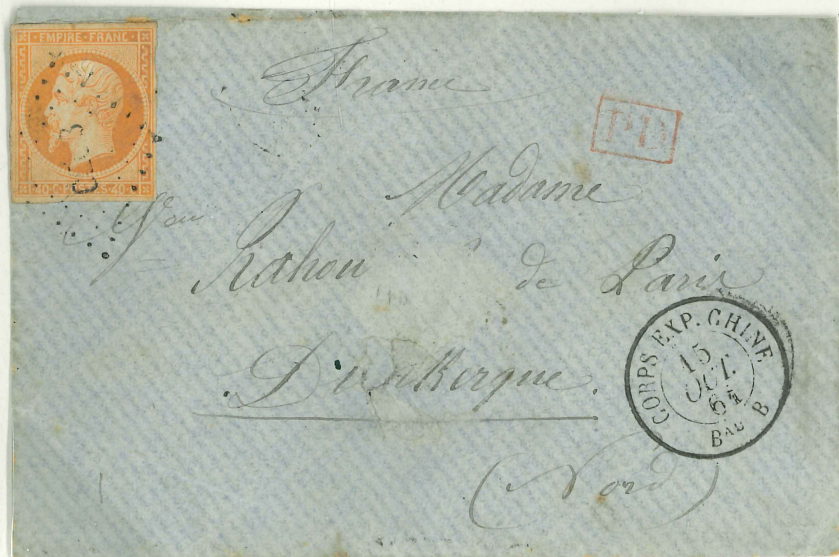 EMPIRE FRANC
40 C. POSTES 40 C
France
PD
Madame
de Paris
Dunkerque.
(Nord)
CORPS EXP. CHINE
15
OCT.
BAU B